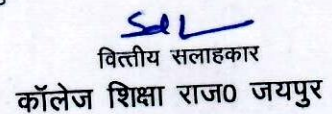 Sd/-
वित्तीय सलाहकार
कॉलेज शिक्षा राज0 जयपुर